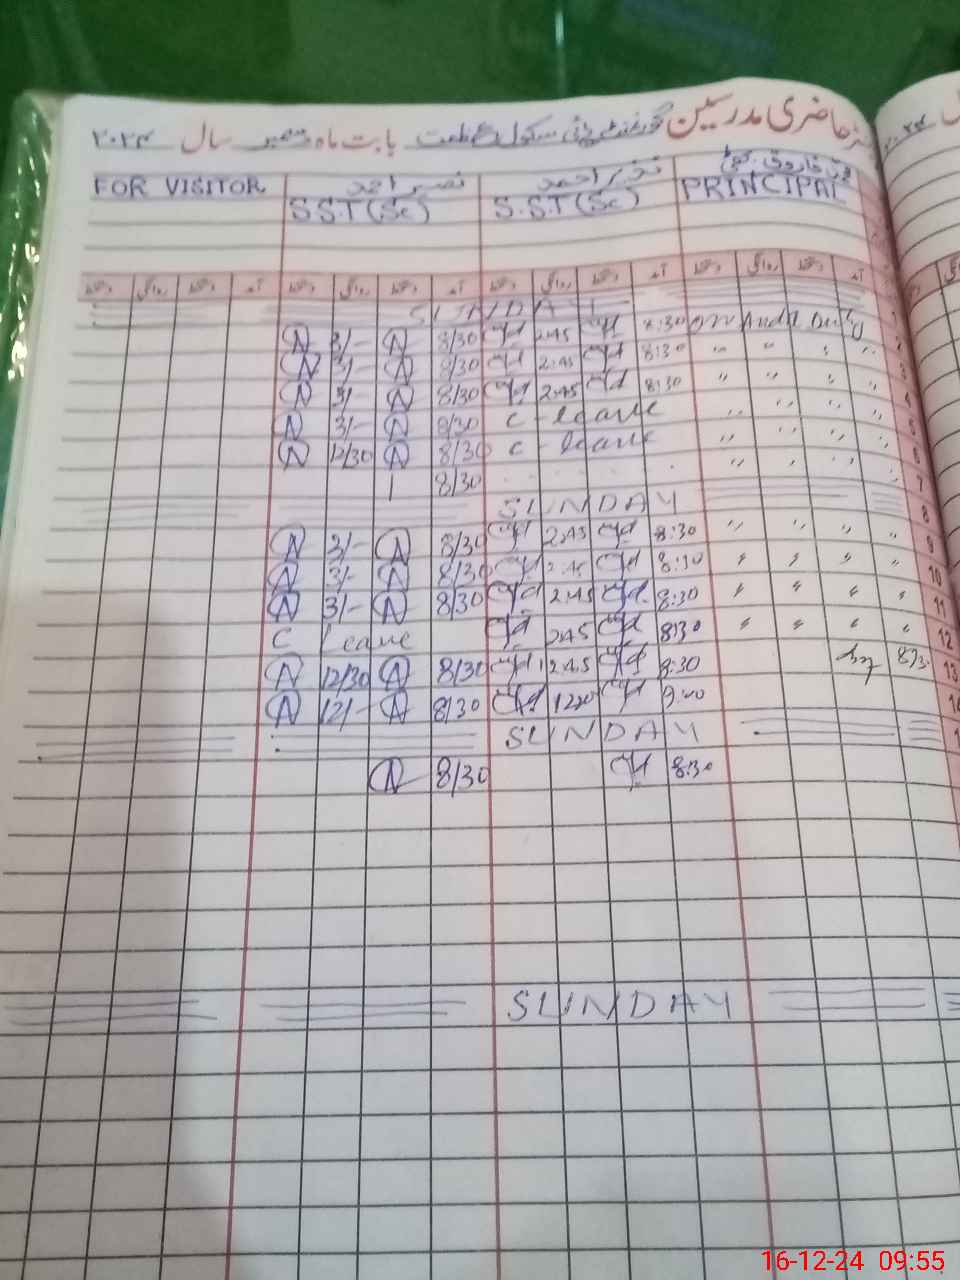 حاضری مدرسین گورنمنٹ ہائی سکول بابت ماہ دسمبر سال ۲۰۲۴
FOR VISITOR نصیر احمد نذیر احمد
S.S.T(Sc) S.S.T(Sc) PRINCIPAL
دستخط روانگی دستخط آمد دستخط روانگی دستخط آمد دستخط روانگی دستخط آمد دستخط روانگی دستخط آمد
SUNDAY
N 3/- N 8/30 2:45 8:30
N 3/- N 8/30 2:45 8:30 " " " " 3
N 3/- N 8/30 2:45 8:30 " " " " 4
N 3/- N 8/30 C - leave " " " " 5
N 12/30 N 8/30 C - leave " " " " 6
8/30 " " " " 7
SUNDAY 8
N 3/- N 8/30 2:45 8:30 " " " " 9
N 3/- N 8/30 2:45 8:30 " " " " 10
N 3/- N 8/30 2:45 8:30 " " " " 11
C leave 2:45 8:30 " " " " 12
N 12/30 N 8/30 12:45 8:30 8/30 13
N 12/- N 8/30 9:00
SUNDAY
N 8/30 8:30
SUNDAY
16-12-24 09:55